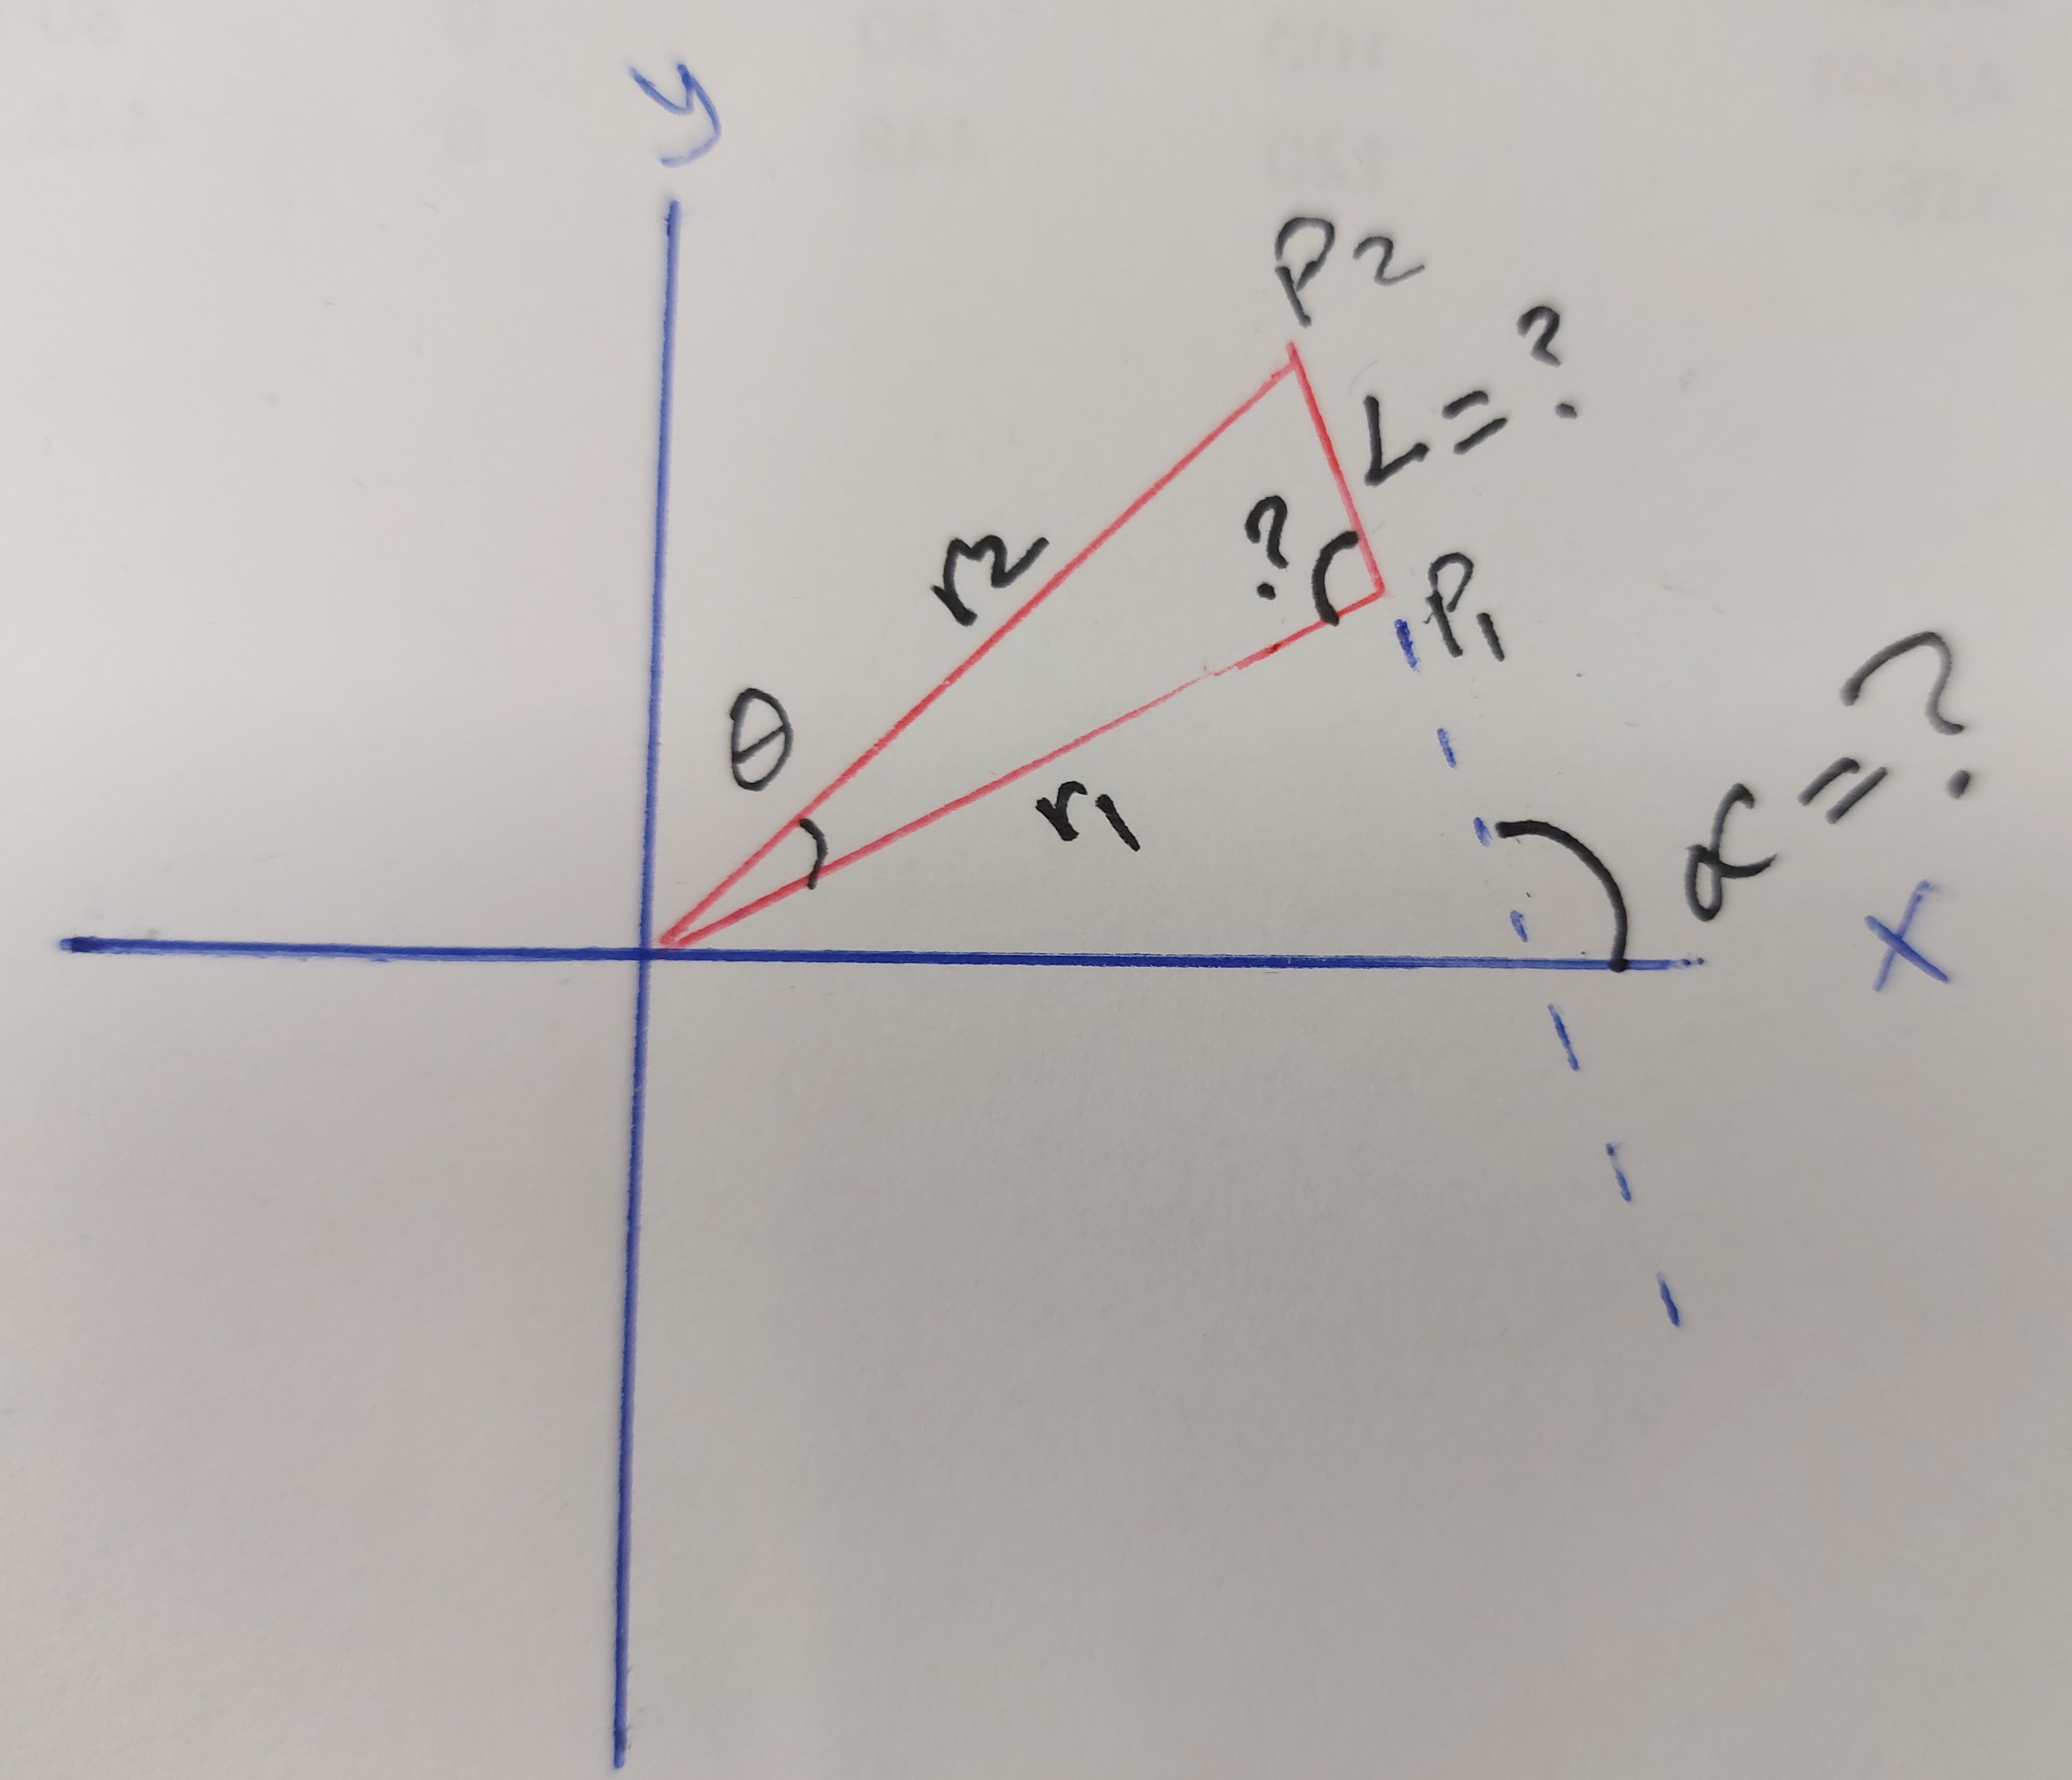 y
P2
L = ?
?
r2
P1
θ
r1
α = ?
x